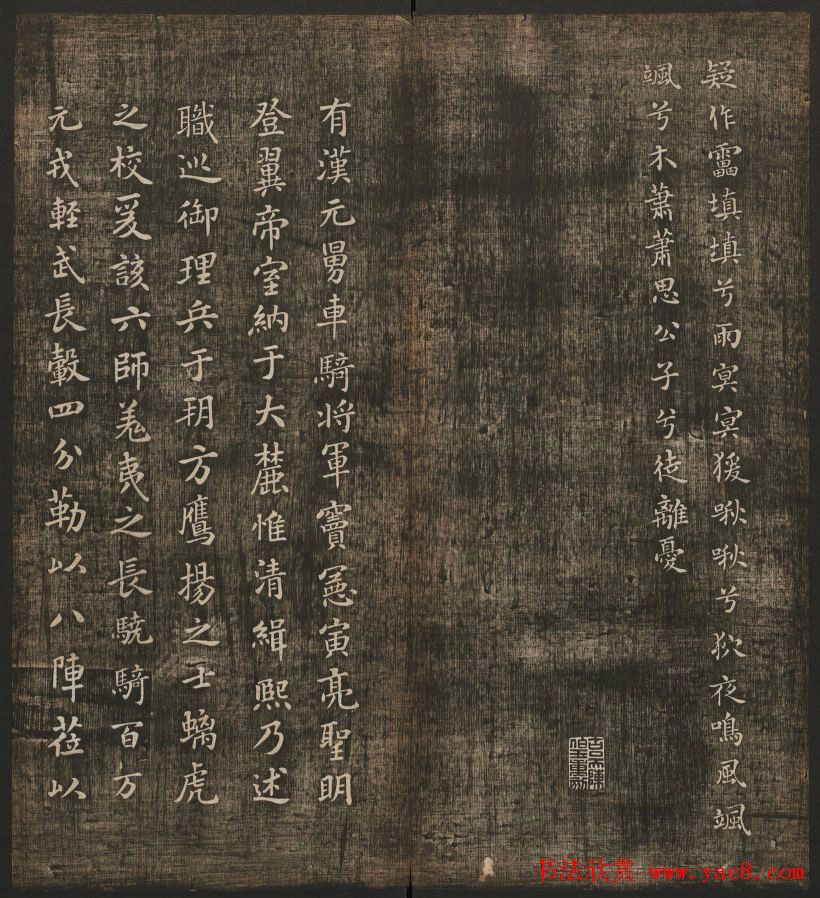 疑作靁填填兮雨冥冥猨啾啾兮狖夜鳴風颯
颯兮木蕭蕭思公子兮徒離憂
有漢元舅車騎将軍竇憲寅亮聖明
登翼帝室納于大麓惟清緝熙乃述
職巡御理兵于朔方鷹揚之士螭虎
之校爰該六師羌夷之長驍騎百万
元戎軽武長轂四分勒以八陣莅以
书法欣赏 www.yac8.com